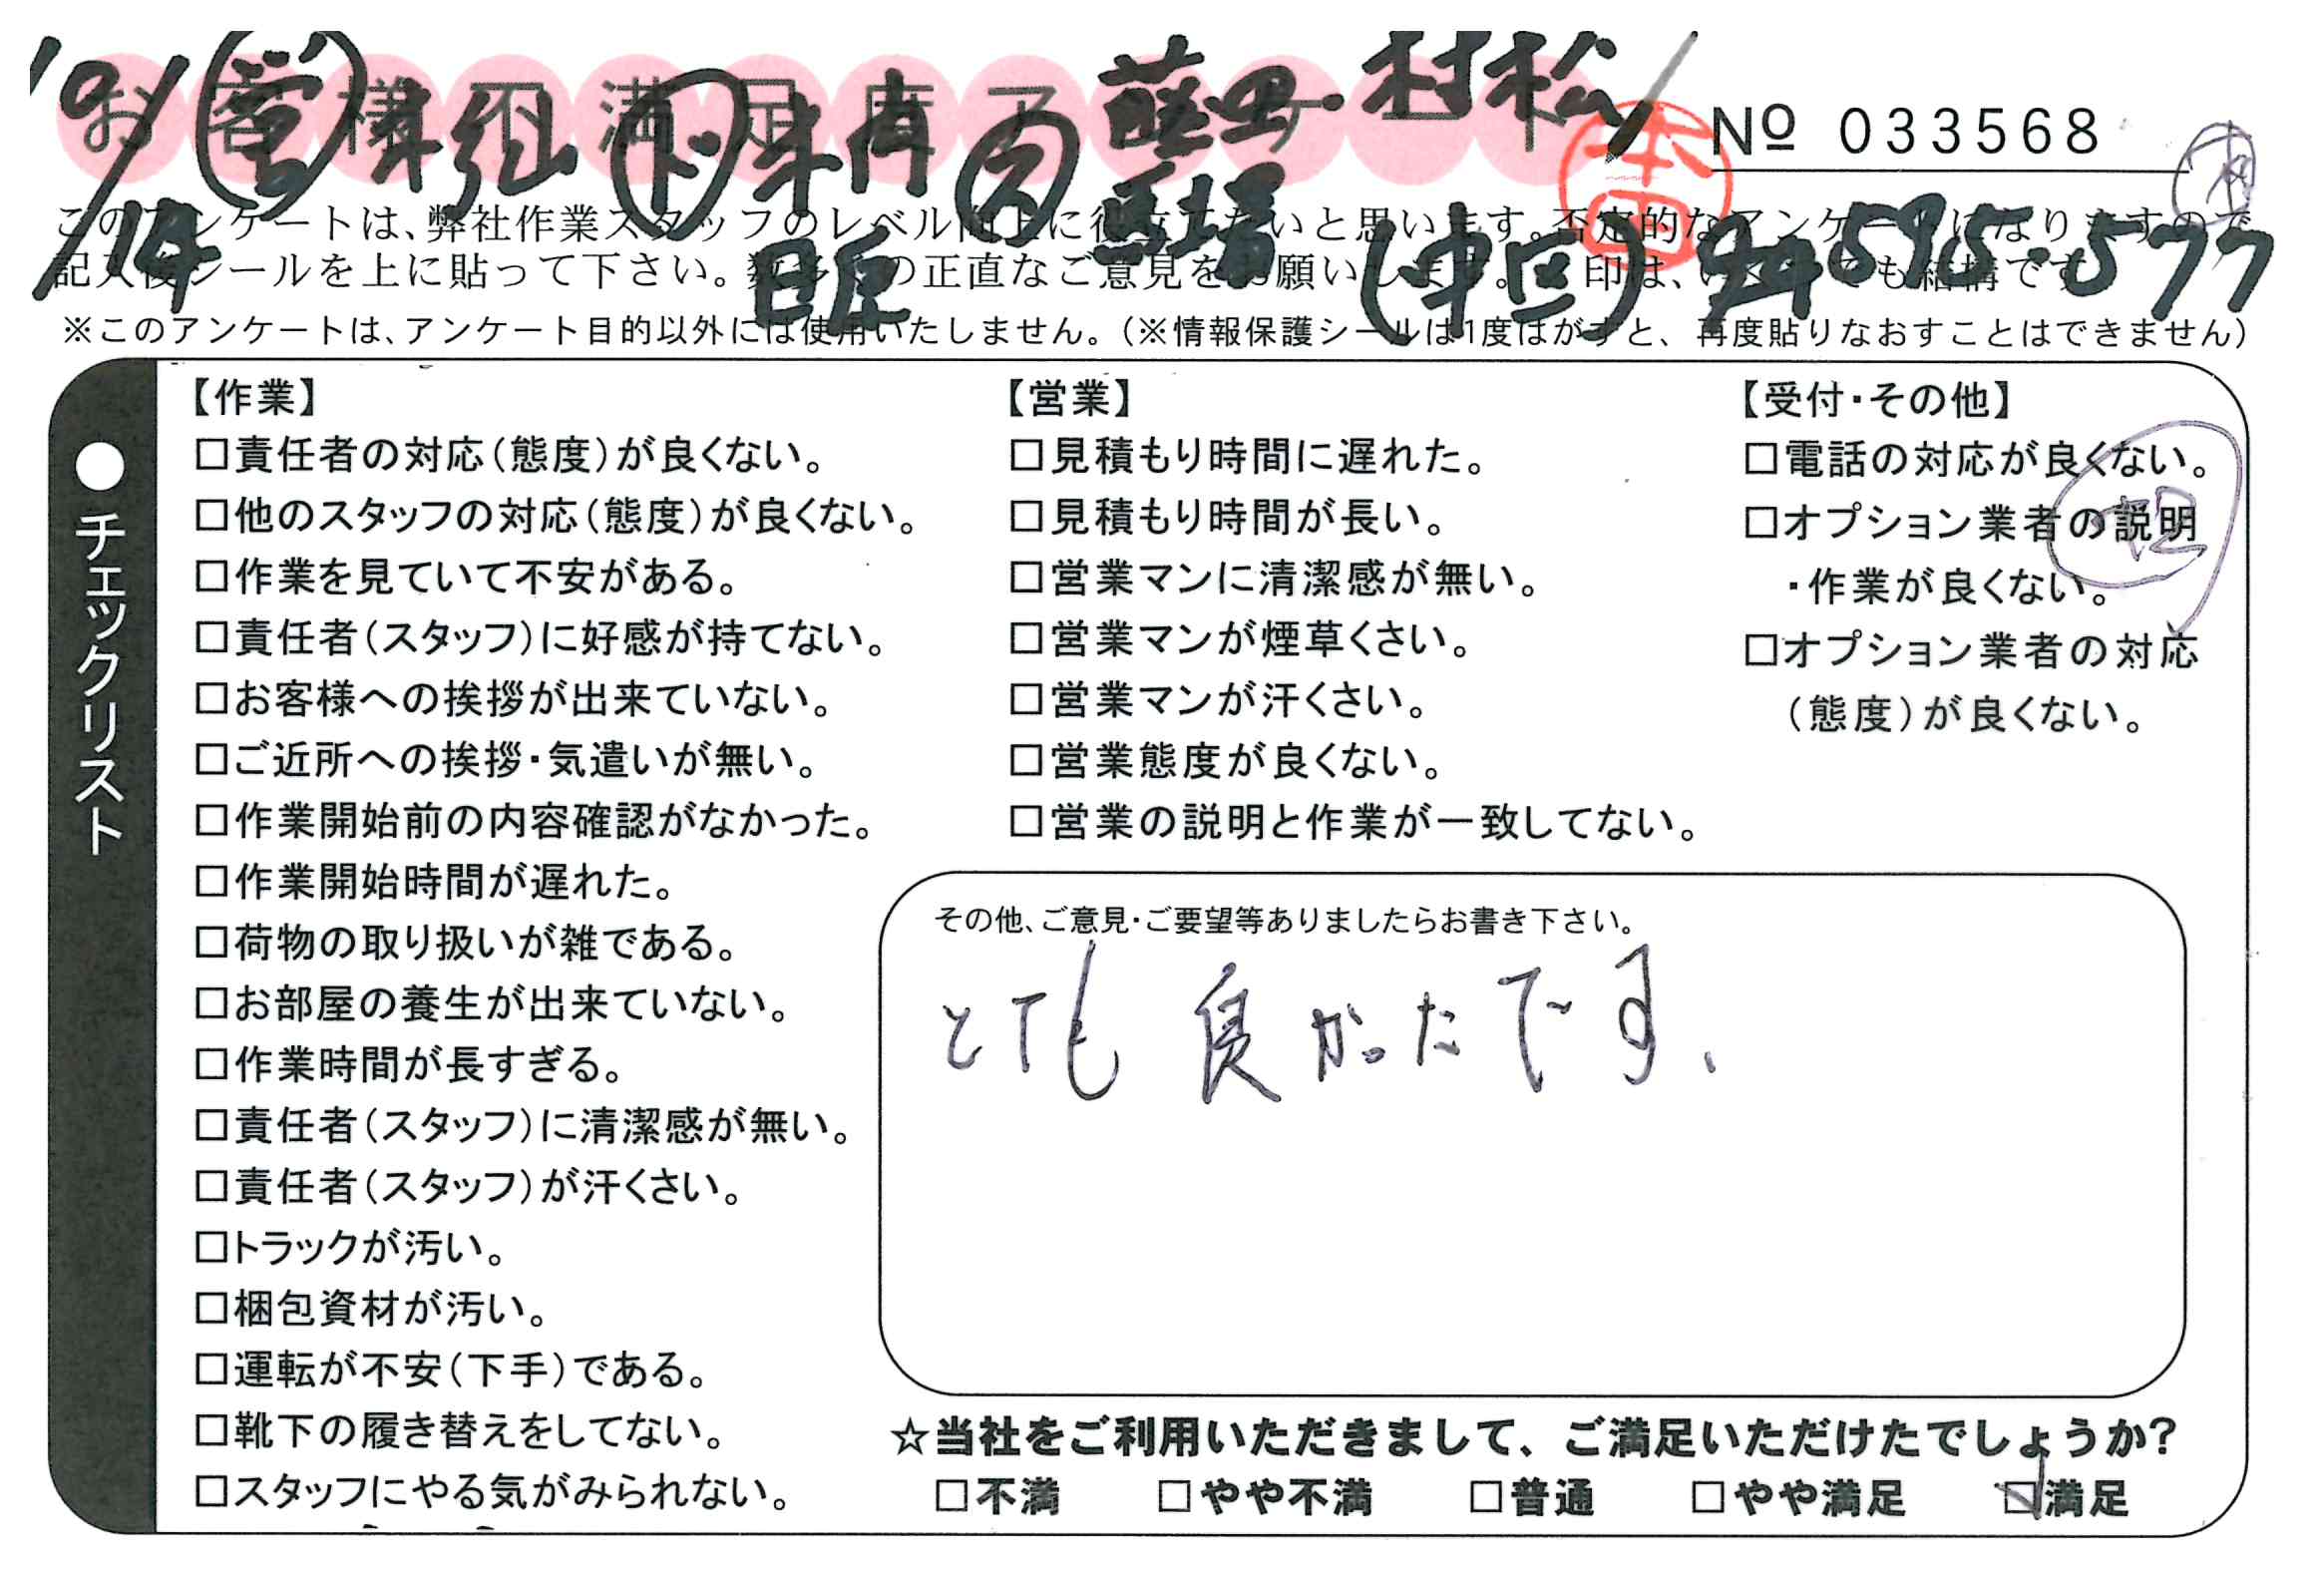 お客様不満足度アンケート
10/14 営 下 藤田 村松
No 033568
(中区) 595-577
このアンケートは、弊社作業スタッフのレベル向上に役立てたいと思います。否定的なアンケートになりますので
記入後シールを上に貼って下さい。数多くの正直なご意見をお願いします。
※このアンケートは、アンケート目的以外には使用いたしません。（※情報保護シールは1度はがすと、再度貼りなおすことはできません）
本田
●チェックリスト
【作業】
□責任者の対応（態度）が良くない。
□他のスタッフの対応（態度）が良くない。
□作業を見ていて不安がある。
□責任者（スタッフ）に好感が持てない。
□お客様への挨拶が出来ていない。
□ご近所への挨拶・気遣いが無い。
□作業開始前の内容確認がなかった。
□作業開始時間が遅れた。
□荷物の取り扱いが雑である。
□お部屋の養生が出来ていない。
□作業時間が長すぎる。
□責任者（スタッフ）に清潔感が無い。
□責任者（スタッフ）が汗くさい。
□トラックが汚い。
□梱包資材が汚い。
□運転が不安（下手）である。
□靴下の履き替えをしてない。
□スタッフにやる気がみられない。
【営業】
□見積もり時間に遅れた。
□見積もり時間が長い。
□営業マンに清潔感が無い。
□営業マンが煙草くさい。
□営業マンが汗くさい。
□営業態度が良くない。
□営業の説明と作業が一致してない。
【受付・その他】
□電話の対応が良くない。
□オプション業者の説明
・作業が良くない。
□オプション業者の対応
（態度）が良くない。
その他、ご意見・ご要望等ありましたらお書き下さい。
とても良かったです、
☆当社をご利用いただきまして、ご満足いただけたでしょうか？
□不満 □やや不満 □普通 □やや満足 ☑満足